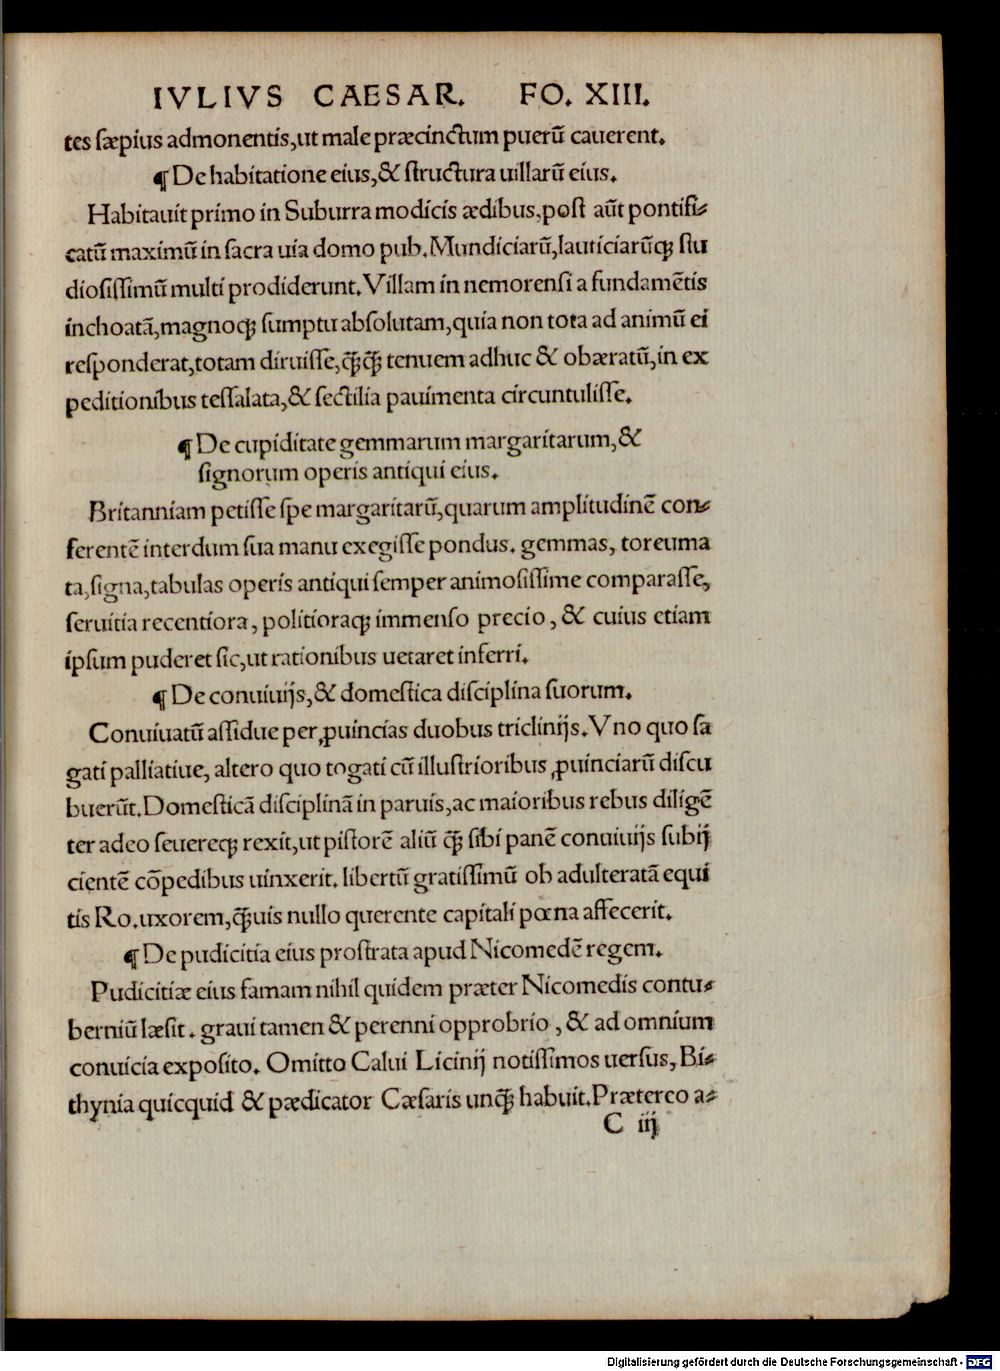 IVLIVS CAESAR. FO. XIII.
tes sæpius admonentis,ut male præcinctum puerū cauerent.
¶ De habitatione eius,& structura uillarū eius.
Habitauit primo in Suburra modicis ædibus,post aūt pontifi-
catū maximū in sacra uia domo pub.Mundiciarū,lauticiarūq; stu
diosissimū multi prodiderunt.Villam in nemorensi a fundamētis
inchoatā,magnoq; sumptu absolutam,quia non tota ad animū ei
responderat,totam diruisse,q̄q̄ tenuem adhuc & obæratū,in ex
peditionibus tessalata,& sectilia pauimenta circuntulisse.
¶ De cupiditate gemmarum margaritarum,&
signorum operis antiqui eius.
Britanniam petisse spe margaritarū,quarum amplitudinē con-
ferentē interdum sua manu exegisse pondus. gemmas, toreuma
ta,signa,tabulas operis antiqui semper animosissime comparasse,
seruitia recentiora, politioraq; immenso precio, & cuius etiam
ipsum puderet sic,ut rationibus uetaret inferri.
¶ De conuiuijs,& domestica disciplina suorum.
Conuiuatū assidue per ꝓuincias duobus triclinijs.Vno quo sa
gati palliatiue, altero quo togati cū illustrioribus ꝓuinciarū discu
buerūt.Domesticā disciplinā in paruis,ac maioribus rebus diligē
ter adeo seuereq; rexit,ut pistorē aliū q̄ sibi panē conuiuijs subij
cientē cōpedibus uinxerit. libertū gratissimū ob adulteratā equi
tis Ro.uxorem,q̄uis nullo querente capitali pœna affecerit.
¶ De pudicitia eius prostrata apud Nicomedē regem.
Pudicitiæ eius famam nihil quidem præter Nicomedis contu-
berniū læsit. graui tamen & perenni opprobrio, & ad omnium
conuicia exposito. Omitto Calui Licinij notissimos uersus, Bi-
thynia quicquid & pædicator Cæsaris unq̄ habuit.Præterco a-
C iij
Digitalisierung gefördert durch die Deutsche Forschungsgemeinschaft - DFG